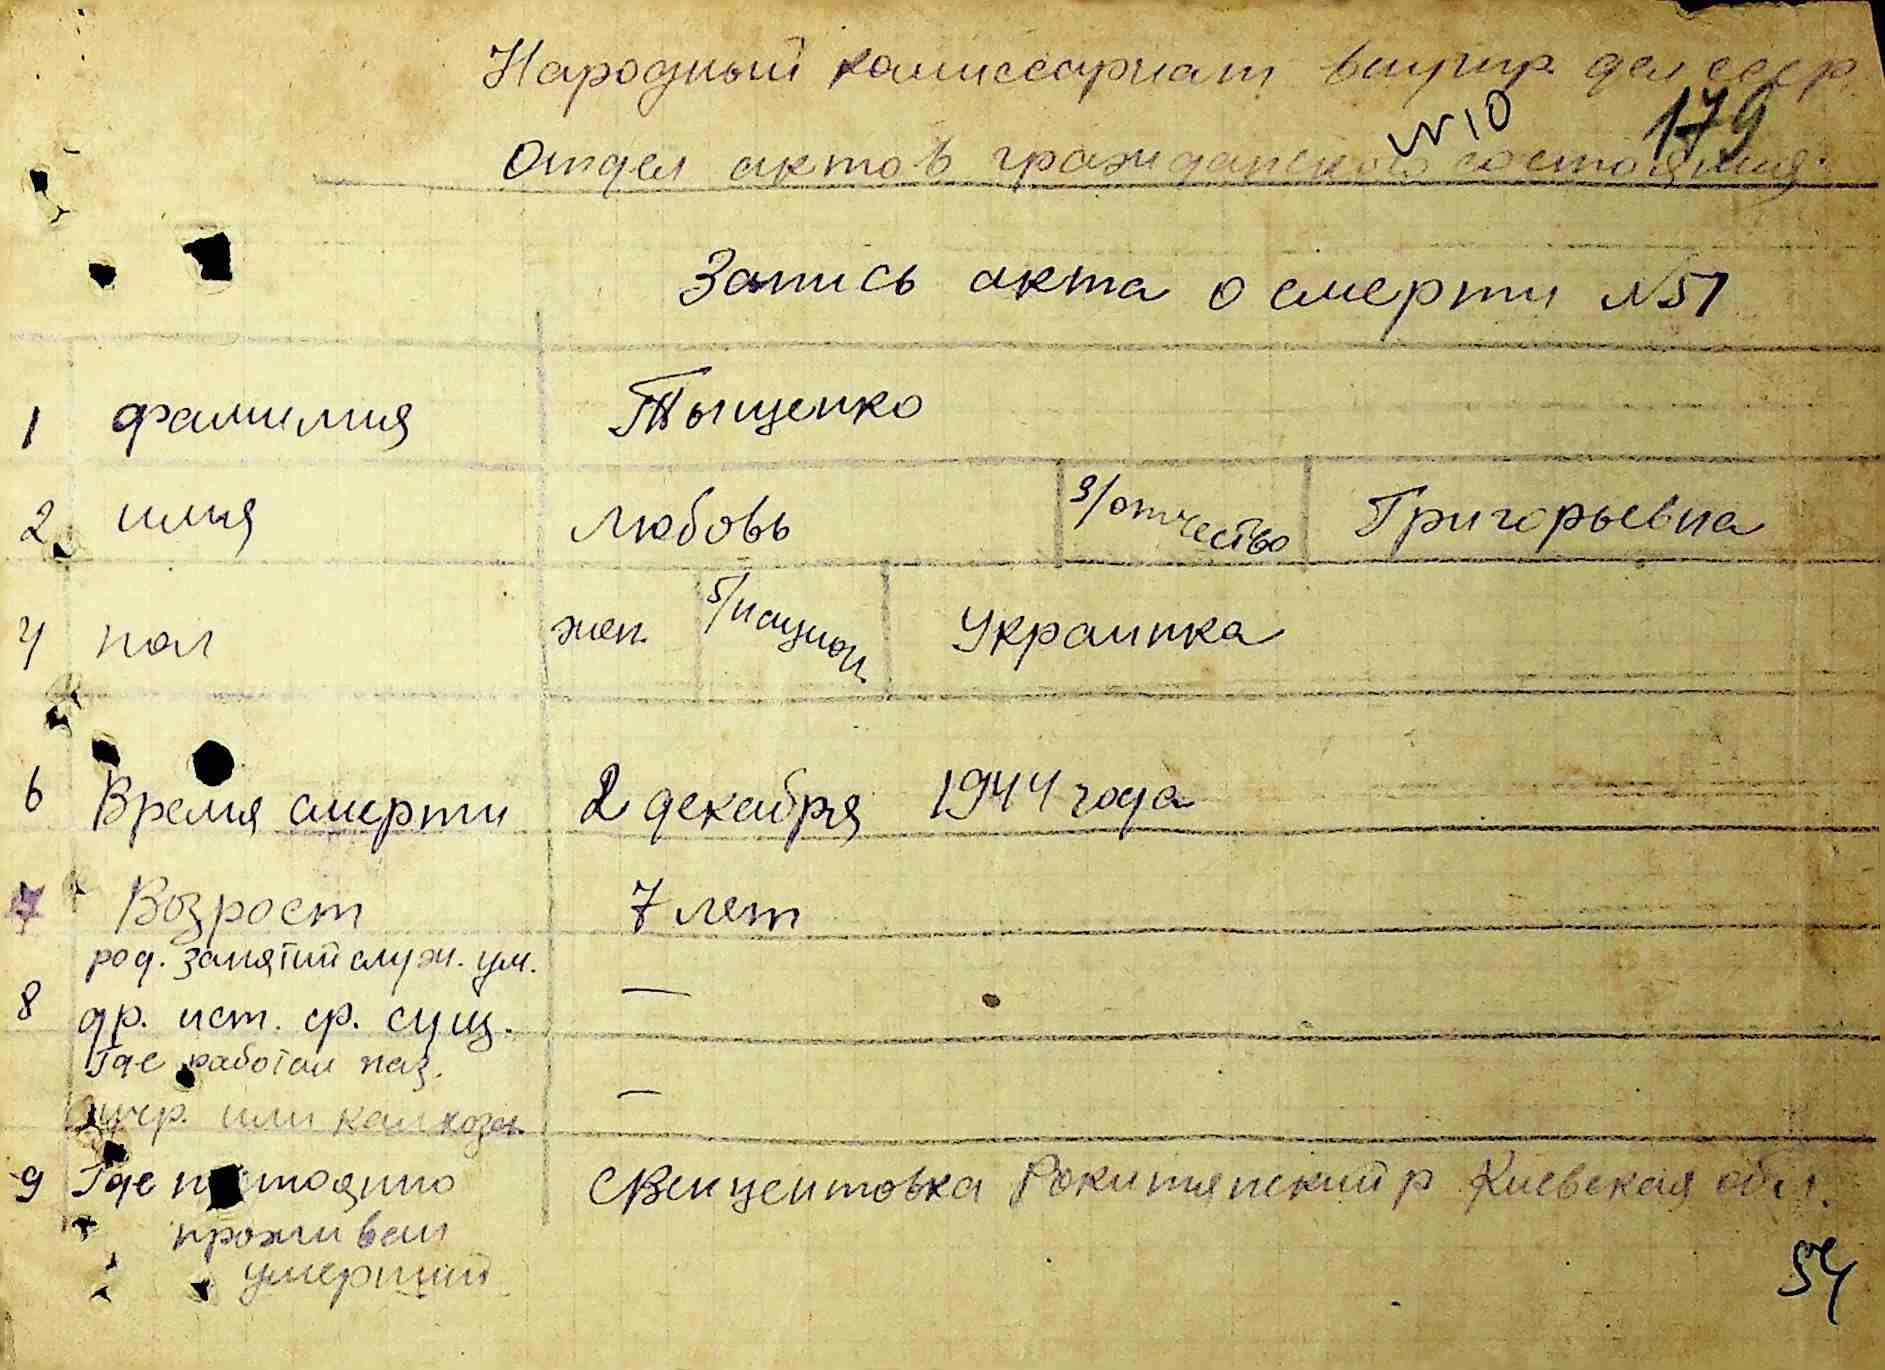 Народный комиссариат внутр. дел ссср
№10 179
Отдел актов гражданского состояния.
Запись акта о смерти №51
1 фамилия Тыщенко
2 имя Любовь 3/отчество Григорьевна
4 пол жен. 5/национ. Украинка
6 Время смерти 2 декабря 1944 года
7 Возрост 7 лет
род. занятий служ. ум.
8 др. ист. ср. сущ. —
Где работал наз.
учр. или колхоза. —
9 Где постоянно Свенцентовка Рокитянский р Киевская обл.
проживал
умерший
54